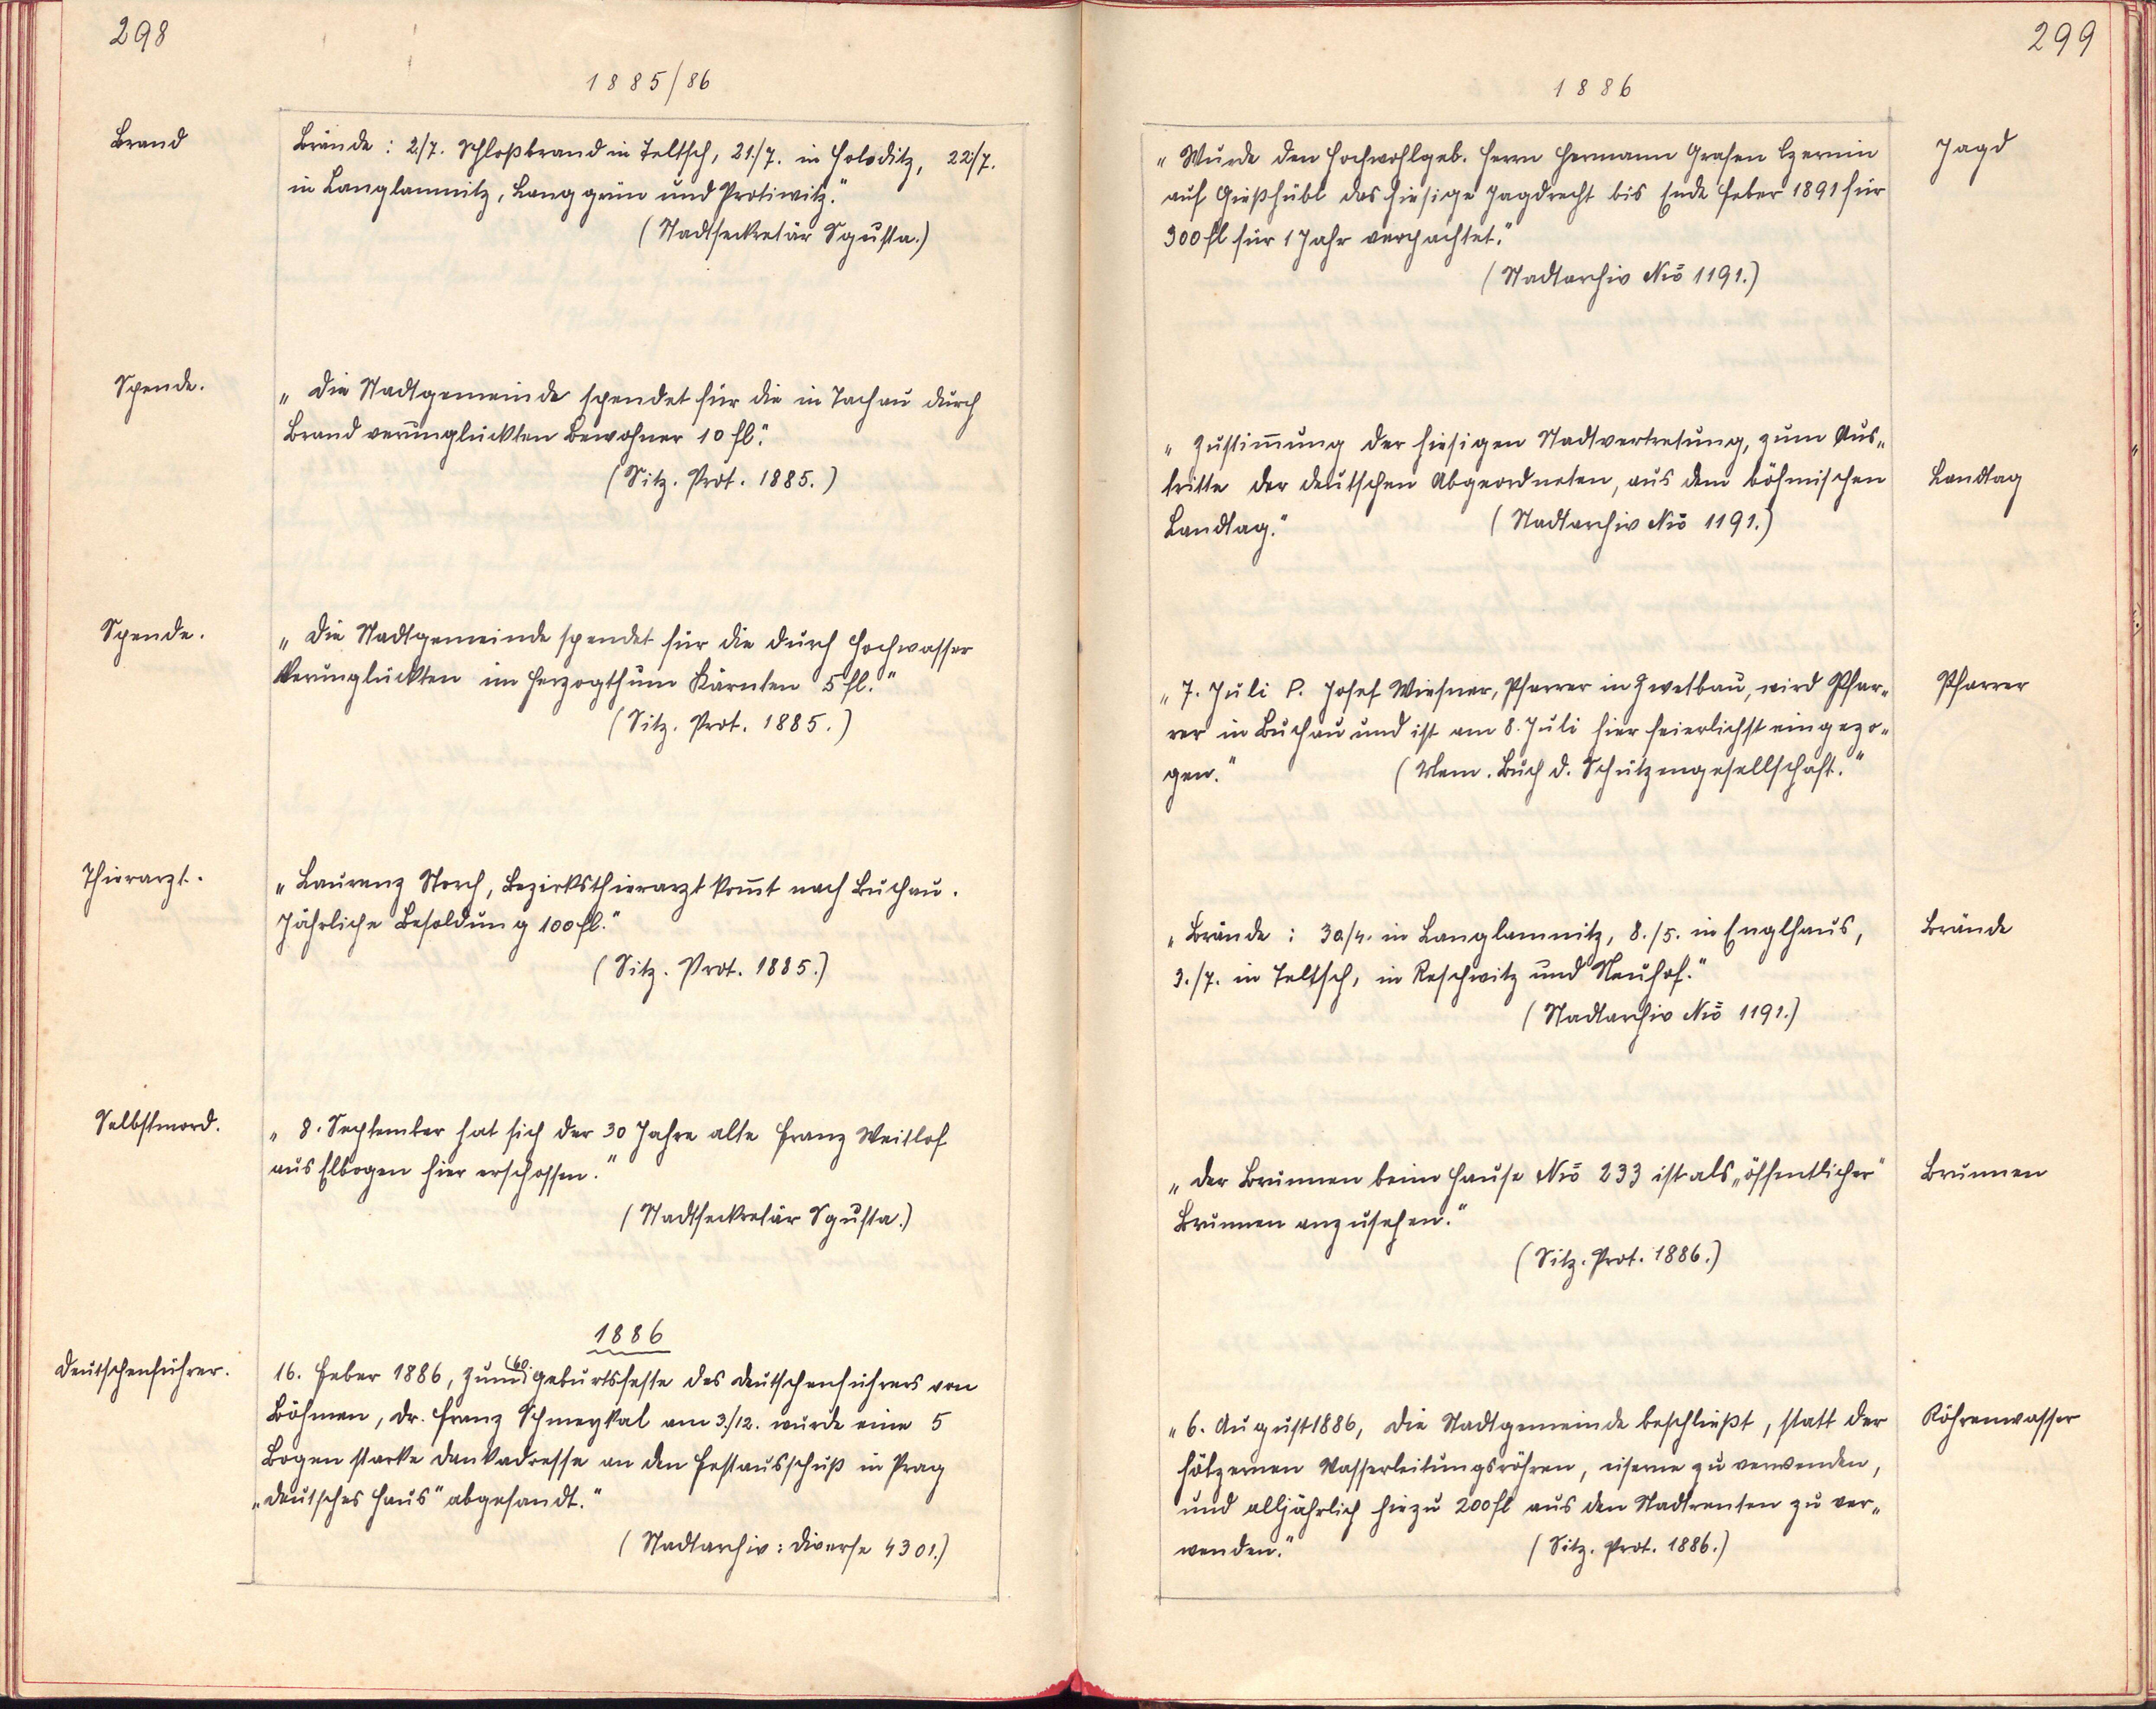 298
1885/86
Brand
Brände : 2./7. Schloßbrand in Teltsch, 21./7. in Holoditz, 22/7.
in Langlamnitz, Langgrün und Protiwitz."
(Stadtsekretär Sgusta.)
Spende.
„ Die Stadtgemeinde spendet für die in Tachau durch
Brand verunglückten Bewohner 10 fl."
(Sitz. Prot. 1885.)
Spende.
„ Die Stadtgemeinde spendet für die durch Hochwasser
Verunglückten im Herzogthum Kärnten 5 fl."
(Sitz. Prot. 1885.)
Thierarzt.
„ Laurenz Storch, Bezirksthierarzt kom̄t nach Buchau.
Jährliche Besoldung 100 fl."
(Sitz. Prot. 1885.)
Selbstmord.
„ 8. September hat sich der 30 Jahre alte Franz Weitlof
aus Elbogen hier erschossen."
(Stadtsekretär Sgusta.)
1886
Deutschenführer.
16. Feber 1886, zum 60. Geburtsfeste des Deutschenführers von
Böhmen, Dr. Franz Schmeykal am 3./12. wurde eine 5
Bogen starke Dankadresse an den Festausschuß in Prag
„Deutsches Haus" abgesandt."
(Stadtarchiv: Diverse 4301.)
299
1886
„ Wurde den Hochwohlgeb. Herrn Hermann Grafen Czernin
auf Gießhübl das hiesige Jagdrecht bis Ende Feber 1891 für
300 fl für 1 Jahr verpachtet."
(Stadtarchiv Nro 1191.)
Jagd
„ Zustim̄ung der hiesigen Stadtvertretung, zum Aus„
tritte der deutschen Abgeordneten, aus dem böhmischen
Landtag." (Stadtarchiv Nro 1191.)
Landtag
„ 7. Juli P. Josef Wiesner, Pfarrer in Zwetbau, wird Pfar„
rer in Buchau und ist am 8. Juli hier feierlichst eingezo„
gen." (Mem. Buch d. Schützengesellschaft."
Pfarrer
„ Brände : 30./4. in Langlamnitz, 8./5. in Englhaus,
3./7. in Teltsch, in Reschwitz und Neuhof."
(Stadtarchiv Nro 1191.)
Brände
„ Der Brunnen beim Hause Nro 233 ist als „öffentlicher"
Brunnen anzusehen."
(Sitz. Prot. 1886.)
Brunnen
„ 6. August 1886, Die Stadtgemeinde beschließt, statt der
hölzernen Wasserleitungsröhren, eiserne zu verwenden,
und alljährlich hiezu 200 fl aus den Stadtrenten zu ver„
wenden." (Sitz. Prot. 1886.)
Röhrenwasser